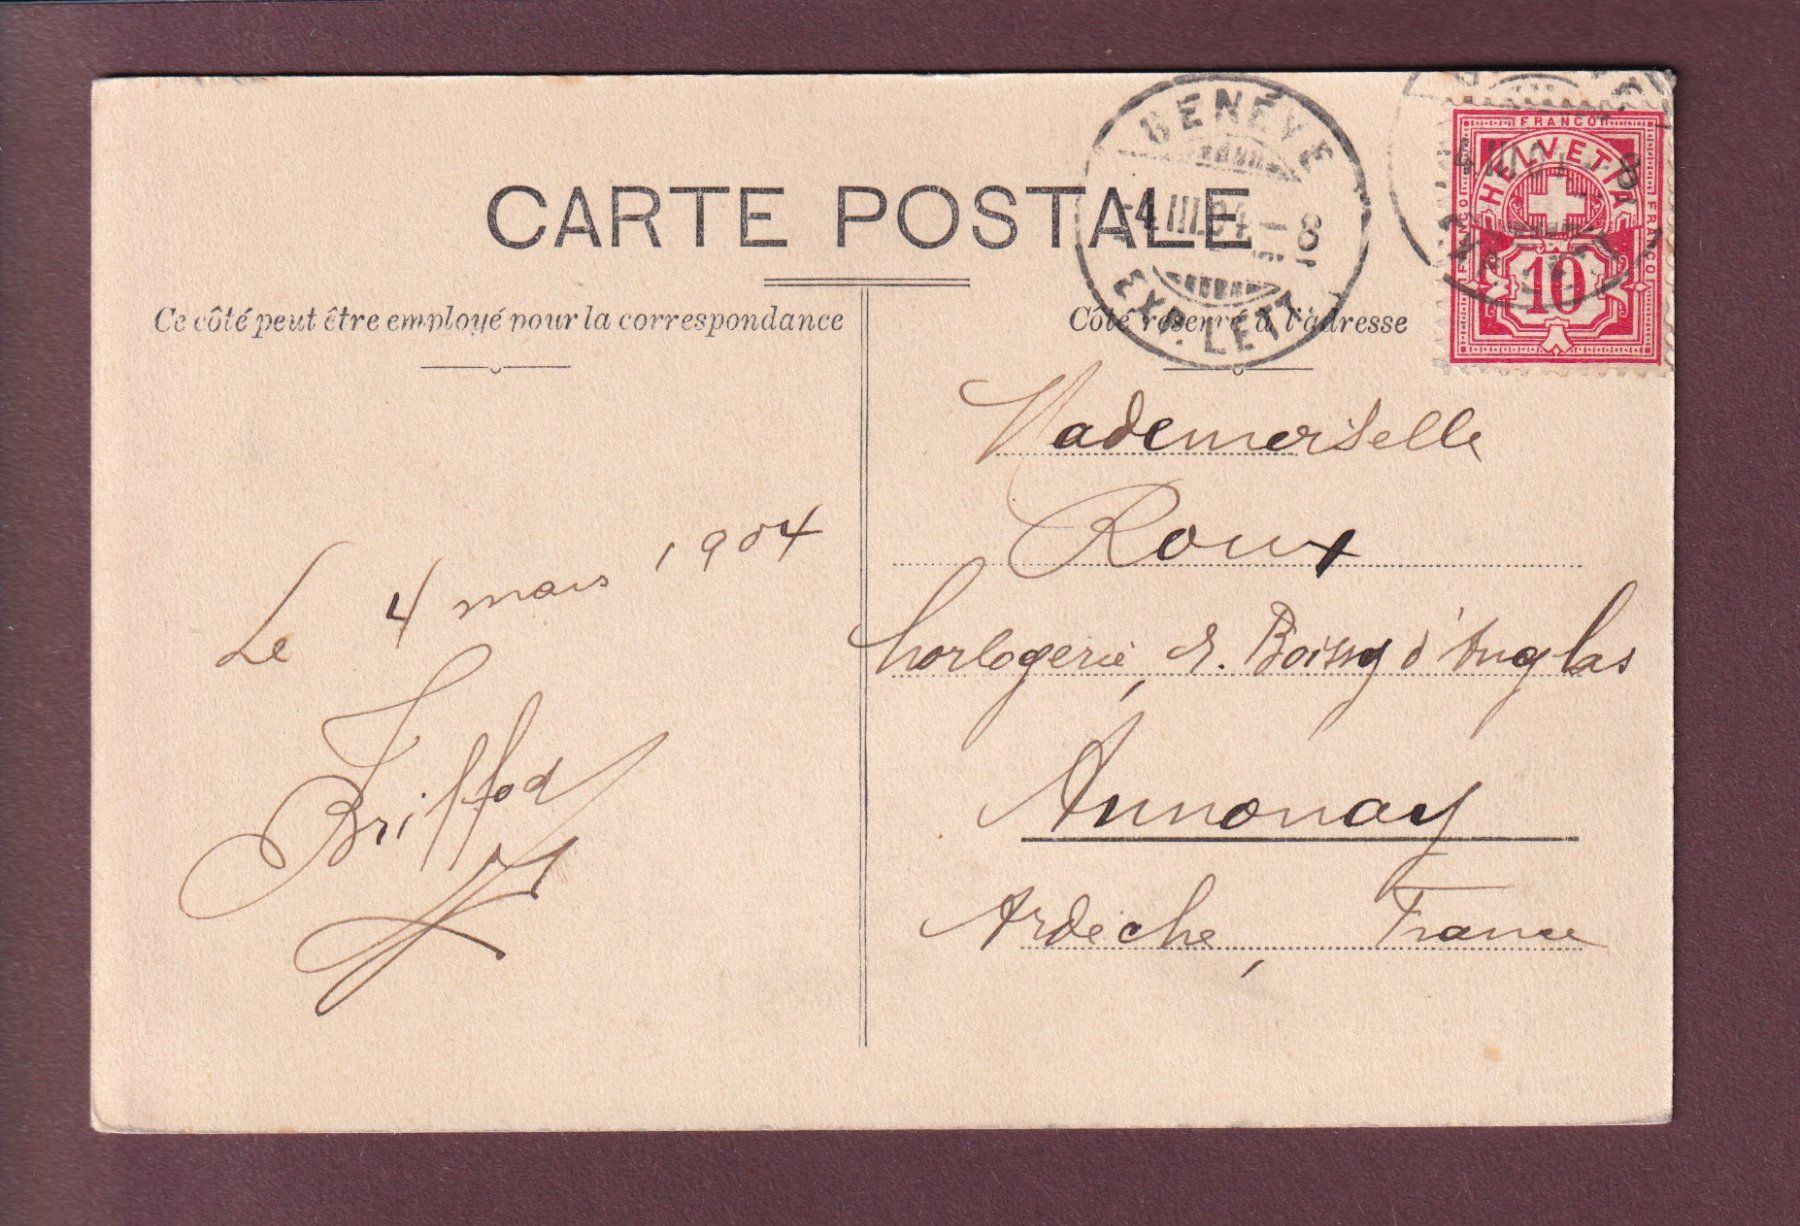 CARTE POSTALE
Ce côté peut être employé pour la correspondance
Côté réservé à l'adresse
GENÈVE
-4.III.04.-8
EXP. LETT.
FRANCO
HELVETIA
FRANCO
FRANCO
10
Le 4 mars 1904
Briffod
Mademoiselle
Roux
horlogerie, r. Boissy d'Anglas
Annonay
Ardèche, France